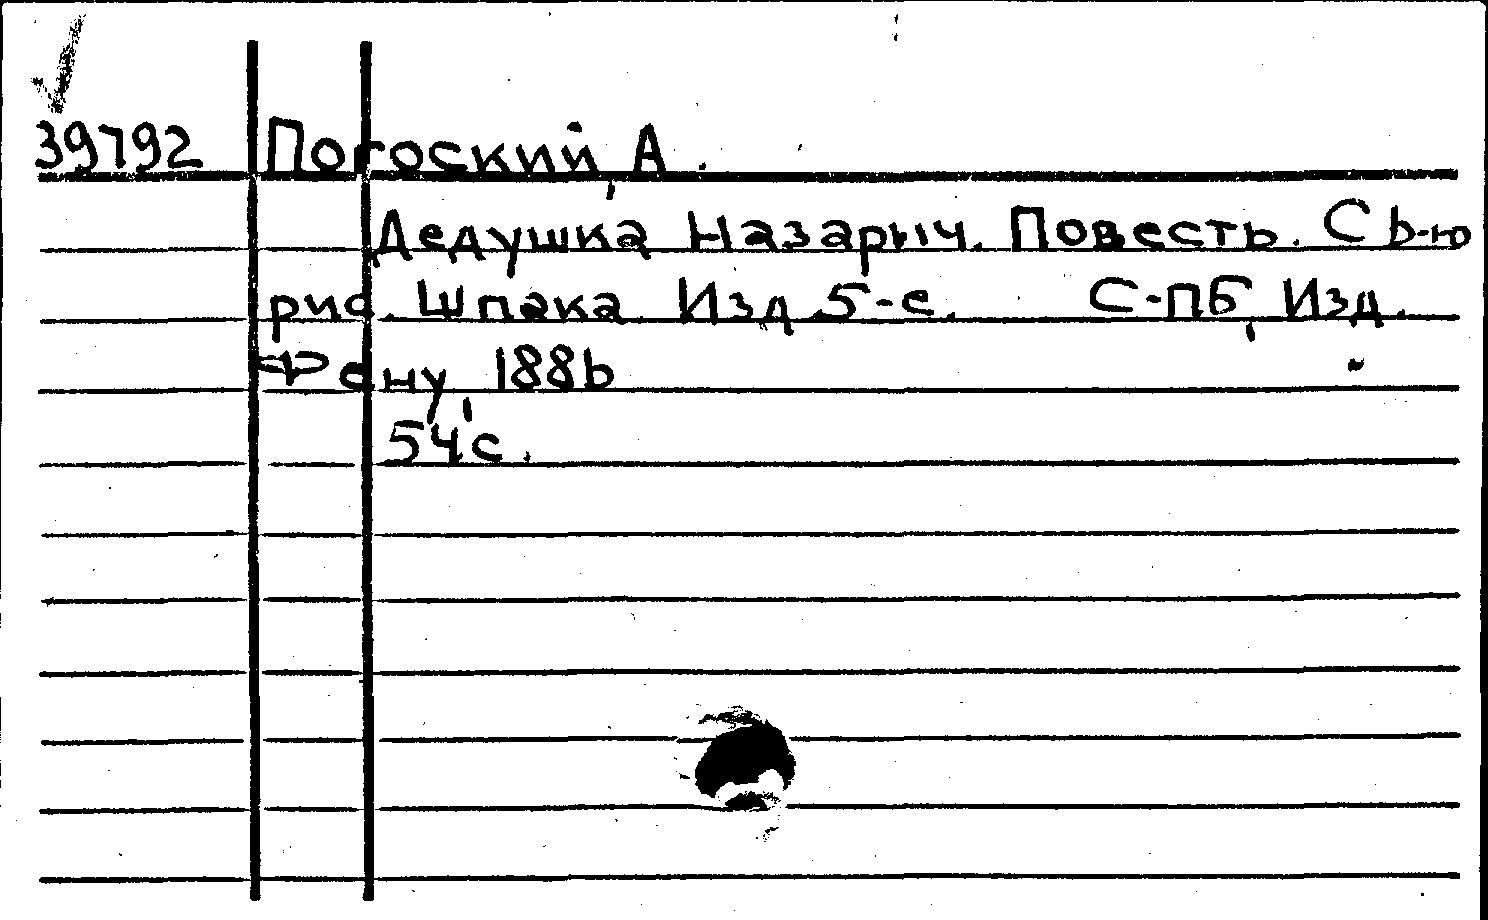 39792 Погоский, А.
Дедушка Назарыч. Повесть. С 6-ю
рис. Шпака. Изд. 5-е. С-ПБ, Изд.
Фену, 1886
54 с.